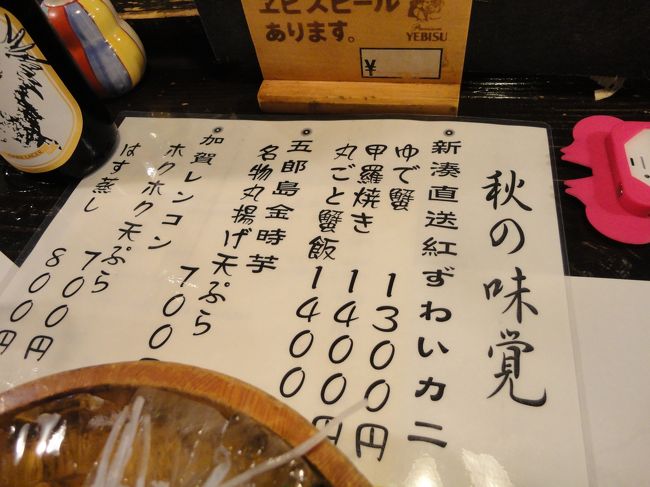 ヱビスビール
あります。
YEBISU
¥
秋の味覚
新湊直送紅ずわいカニ
ゆで蟹 1300円
甲羅焼き 1400円
丸ごと蟹飯 1400
五郎島金時芋
名物丸揚げ天ぷら 700
加賀レンコン
ホクホク天ぷら 700円
はす蒸し 800円